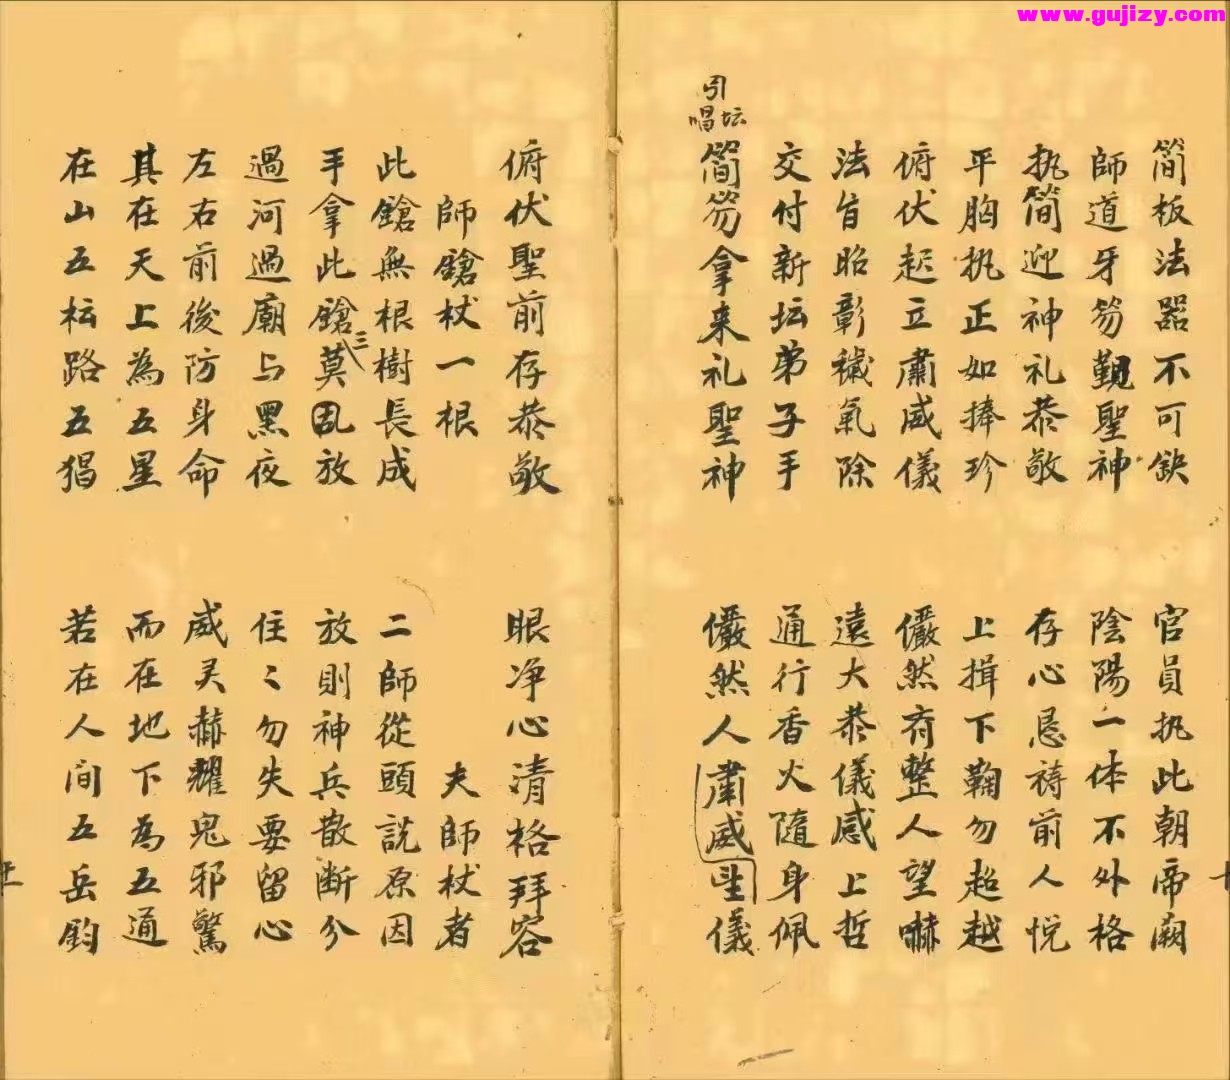 www.gujizy.com
简板法器不可缺 官員执此朝帝闕
師道牙笏覲聖神 陰陽一体不外格
执简迎神礼恭敬 存心恳祷前人悦
平胸执正如捧珍 上揖下鞠勿超越
俯伏起立肅威儀 儼然斉整人望嚇
法旨昭彰穢氣除 遠大恭儀感上哲
交付新坛弟子手 通行香火隨身佩
引坛唱
简笏拿来礼聖神 儼然人肅威聖儀
俯伏聖前存恭敬 眼净心清格拜容
師鎗杖一根 夫師杖者
此鎗無根樹長成 二師從頭説原因
手拿此鎗莫乱放 放則神兵散断分
三
過河過廟与黑夜 住〻勿失要留心
左右前後防身命 威灵赫耀鬼邪驚
其在天上為五星 而在地下為五通
在山五路五猖 若在人间五岳鈞